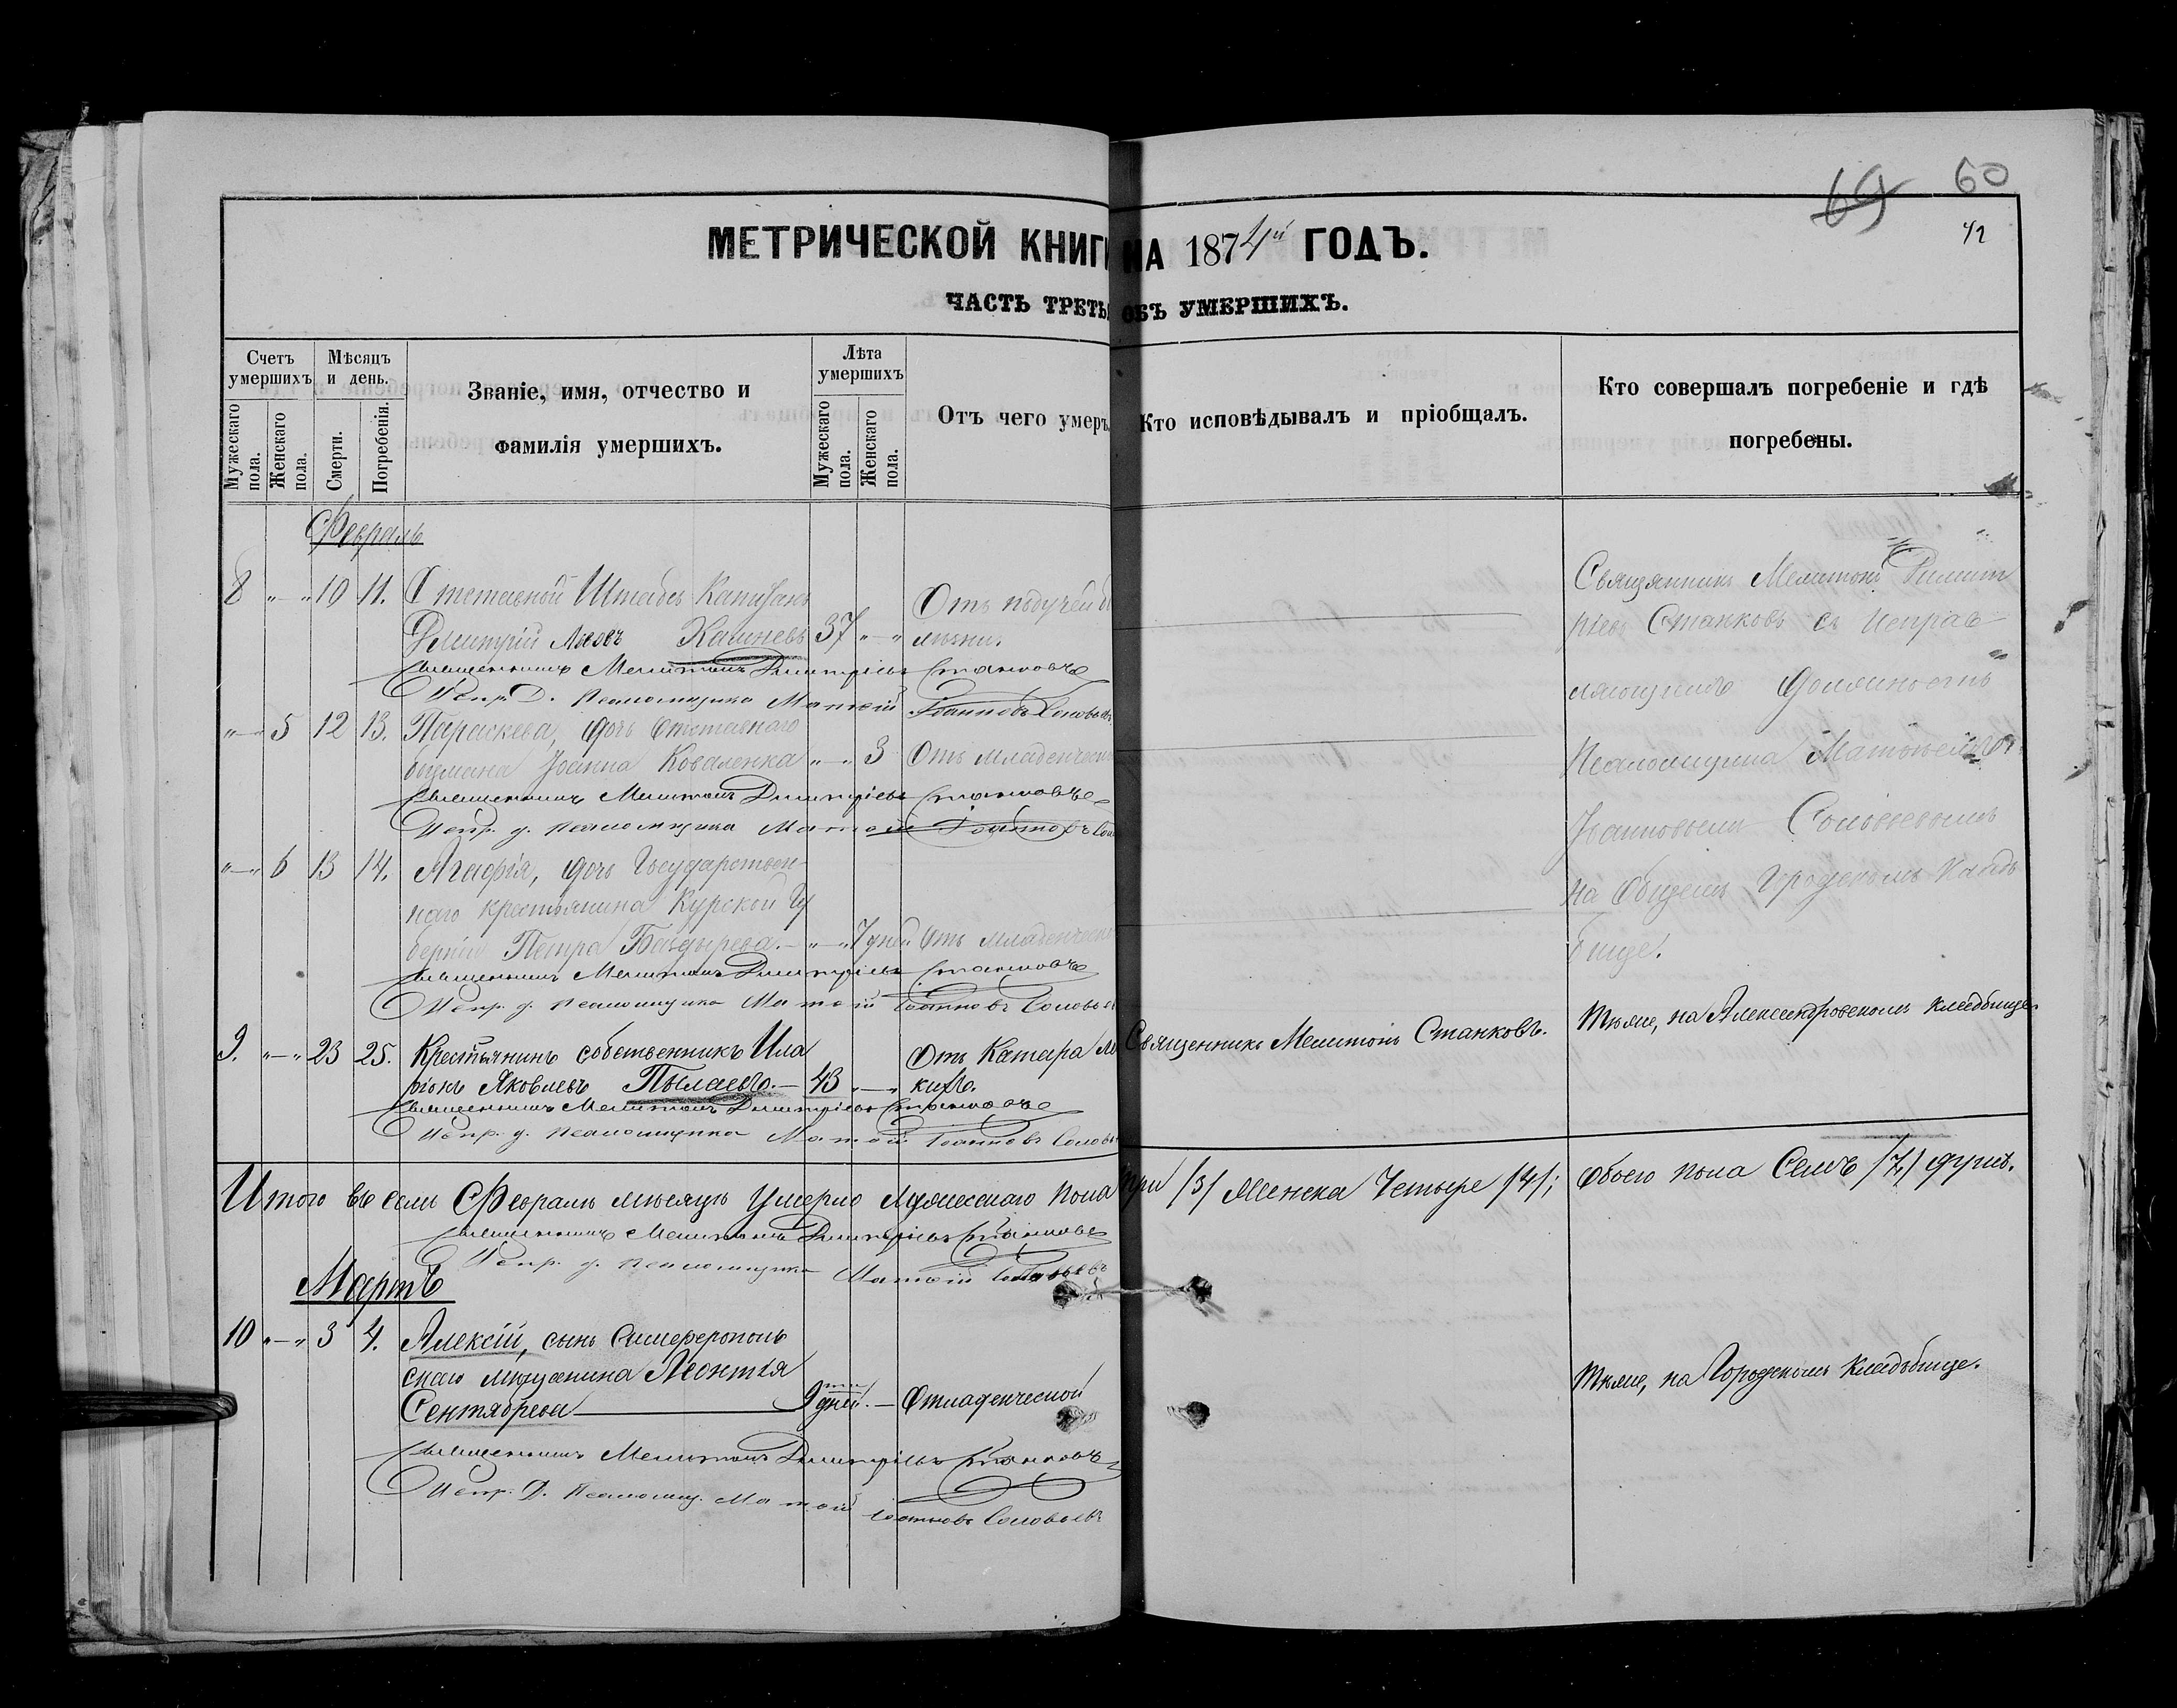 69 60
42
МЕТРИЧЕСКОЙ КНИГИ НА 1874й ГОДЪ.
ЧАСТЬ ТРЕТЬЯ ОБЪ УМЕРШИХЪ.
Счетъ умершихъ
Мужескаго пола.
Женскаго пола.
Мѣсяцъ и день.
Смерти.
Погребенія.
Званіе, имя, отчество и
фамилія умершихъ.
Лѣта умершихъ
Мужескаго пола.
Женскаго пола.
Отъ чего умеръ
Кто исповѣдывалъ и пріобщалъ.
Кто совершалъ погребеніе и гдѣ
погребены.
Февраль
8 „—„ 10 11. Отставной Штабсъ Капитанъ
Димитрій Львовъ Кашневъ 37 „—„ Отъ падучей бо
лѣзни.
Священникъ Мелитонъ Димитріевъ Станковъ
Испр. Д. Псаломщика Матѳій Іоанновъ Соловьевъ
Священникъ Мелитонъ Димит
ріевъ Станковъ съ Исправ
ляющимъ Должность
Псаломщика Матѳіемъ
Іоанновымъ Соловьевымъ
на Общемъ Городскомъ Клад
бище.
„—„ 5 12 13. Параскева, дочь Отставнаго
боцмана Іоанна Коваленка „—„ 3 Отъ младенческой
Священникъ Мелитонъ Димитріевъ Станковъ
Испр. д. псаломщика Матѳій Іоанновъ Соло
„—„ 6 13 14. Агафія, дочь Государствен-
наго крестьянина Курской Гу
берніи Петра Балдырева. — „—„ 7 дней Отъ младенческо
Священникъ Мелитонъ Димитріевъ Станковъ
Испр. д. псаломщика Матѳій Іоанновъ Соловьев
9. „—„ 23 25. Крестьянинъ собственникъ Ила
ріонъ Яковлевъ Пылаевъ. — 43 „—„ Отъ Катара
кихъ.
Священникъ Мелитонъ Станковъ.
Тѣже, на Александровскомъ кладбище.
Священникъ Мелитонъ Димитріевъ Станковъ
Испр. д. псаломщика Матѳій Іоанновъ Соловь
Итого въ семъ Февралѣ мѣсяцѣ Умерло Мужескаго пола три /3/ Женска Четыре /4/; Обоего пола Семь /7/ душъ.
Священникъ Мелитонъ Димитріевъ Станковъ
Испр. д. псаломщика Матѳій Соловьевъ
Мартъ
10 „—„ 3 4. Алексій, сынъ Симферополь
скаго мѣщанина Леонтія
Сентябрева 9ти дней. — Отмладенческой
Тѣже, на Городскомъ кладбище.
Священникъ Мелитонъ Димитріевъ Станковъ
Испр. Д. Псаломщ. Матѳій Іоанновъ Соловьевъ